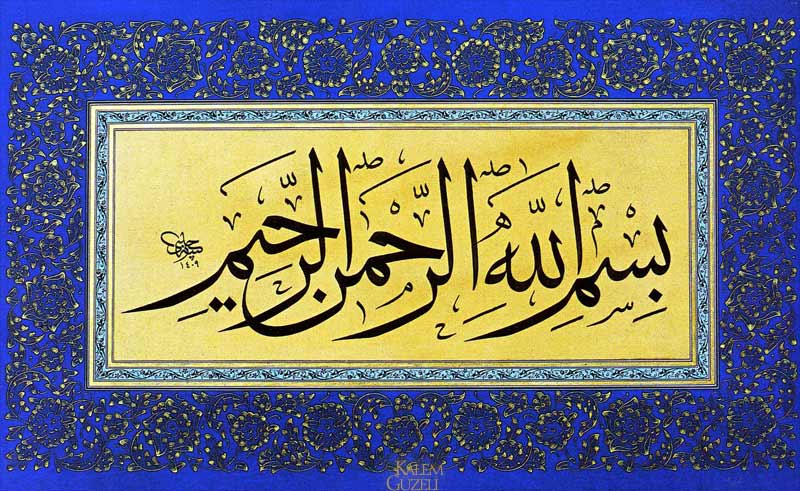 بِسْمِ اللهِ الرَّحْمٰنِ الرَّحِيمِ
١٤٠٩
KALEM
GÜZELİ